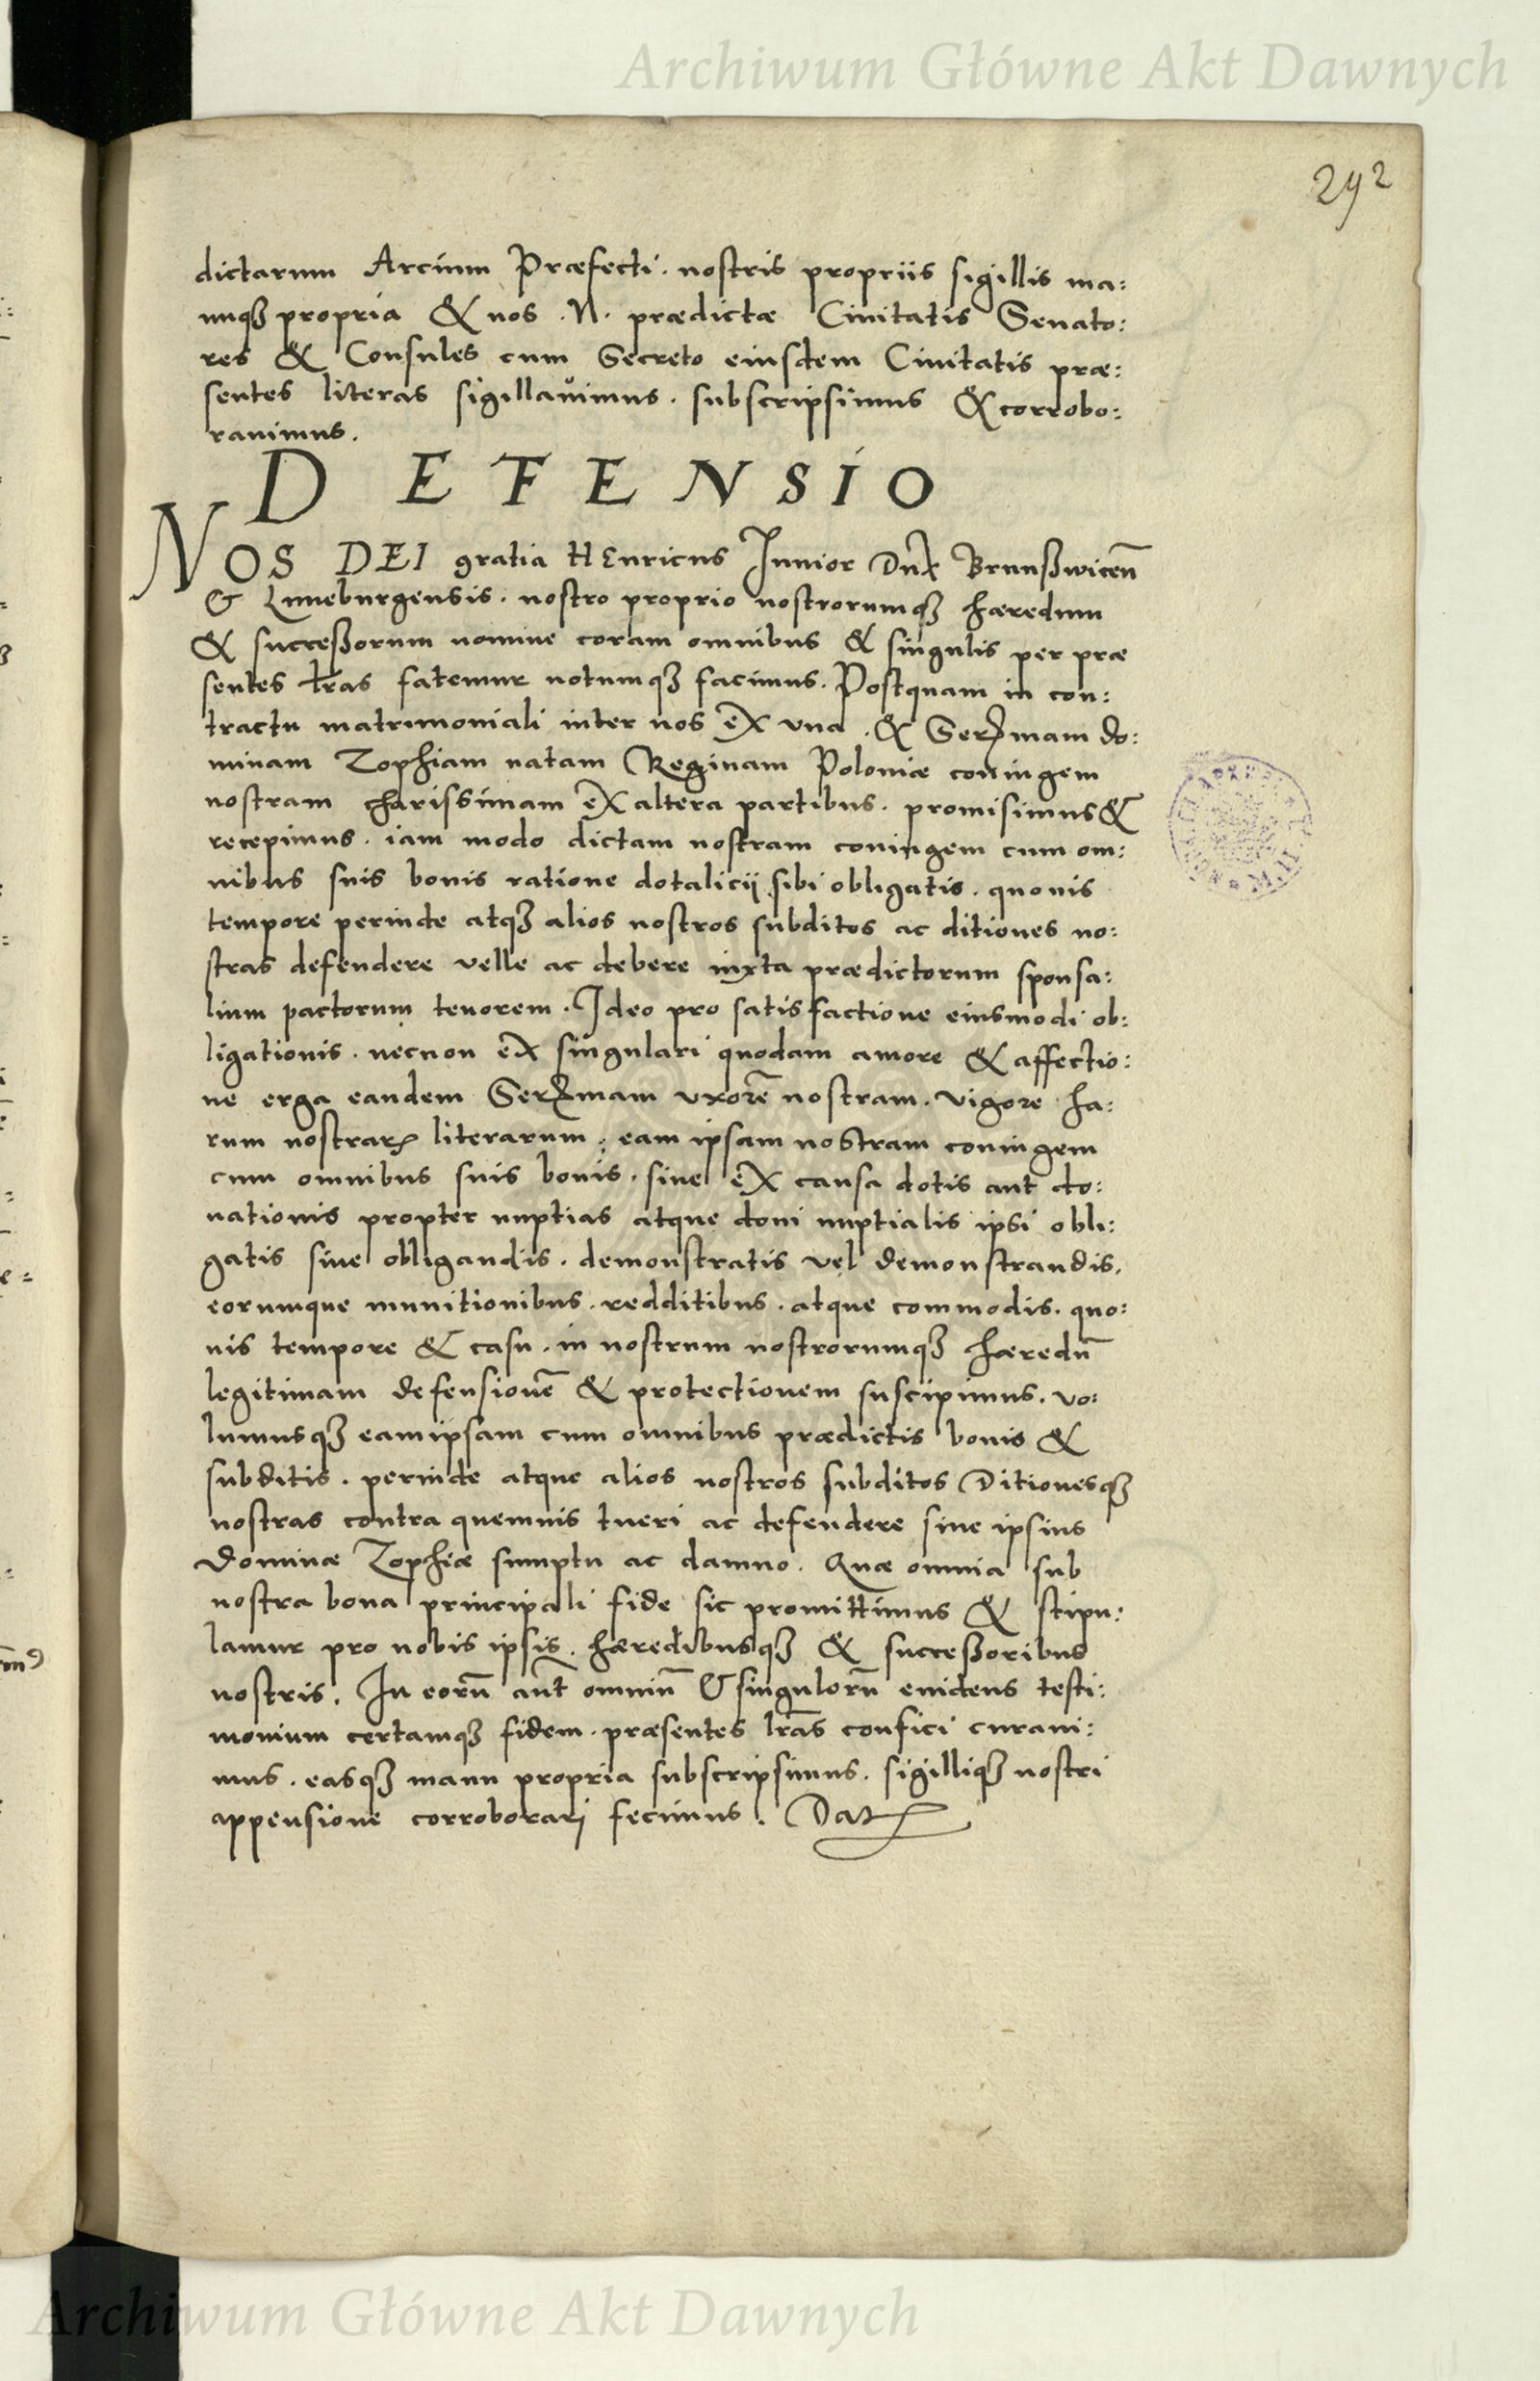 Archiwum Główne Akt Dawnych
292
dictarum Arcium Præfecti. nostris propriis sigillis ma:
nuqꝫ propria & nos .N. prædictæ Ciuitatis Senato:
res & Consules cum Secreto eiusdem Ciuitatis præ:
sentes literas sigillauimus. subscripsimus & corrobo:
rauimus.
DEFENSIO
NOS DEI gratia HEnricus Iunior Dux Brunßwiceñ
& Luneburgensis. nostro proprio nostrorumqꝫ hæredum
& succeßorum nomine coram omnibus & singulis per præ
sentes lr̃as fatemur notumqꝫ facimus. Postquam in con:
tractu matrimoniali inter nos ex vna. & Serm̃am do:
minam Zophiam natam Reginam Poloniæ coniugem
nostram charissimam ex altera partibus. promisimus &
recepimus. iam modo dictam nostram coniugem cum om:
nibus suis bonis ratione dotalicij sibi obligatis. quouis
tempore perinde atqꝫ alios nostros subditos ac ditiones no:
stras defendere velle ac debere iuxta prædictorum sponsa:
lium pactorum tenorem. Ideo pro satisfactione eiusmodi ob:
ligationis. necnon ex singulari quodam amore & affectio:
ne erga eandem Serm̃am vxorẽ nostram. vigore ha:
rum nostrarꝝ literarum. eam ipsam nostram coniugem
cum omnibus suis bonis. siue ex causa dotis aut do:
nationis propter nuptias atque doni nuptialis ipsi obli:
gatis siue obligandis. demonstratis vel demonstrandis.
eorumque munitionibus. redditibus. atque commodis. quo:
uis tempore & casu. in nostrum nostrorumqꝫ hæredũ
legitimam defensionẽ & protectionem suscipimus. vo:
lumusqꝫ eamipsam cum omnibus prædictis bonis &
subditis. perinde atque alios nostros subditos Ditionesqꝫ
nostras contra quemuis tueri ac defendere sine ipsius
Dominæ Zophiæ sumptu ac damno. Quæ omnia sub
nostra bona principali fide sic promittimus & stipu:
lamur pro nobis ipsis. hæredibusqꝫ & succeßoribus
nostris. In eorũ aũt omniũ & singulorũ euidens testi:
monium certamqꝫ fidem. præsentes lr̃as confici curaui:
mus. easqꝫ manu propria subscripsimus. sigilliqꝫ nostri
appensione corroborari fecimus. Datꝝ
Archiwum Główne Akt Dawnych